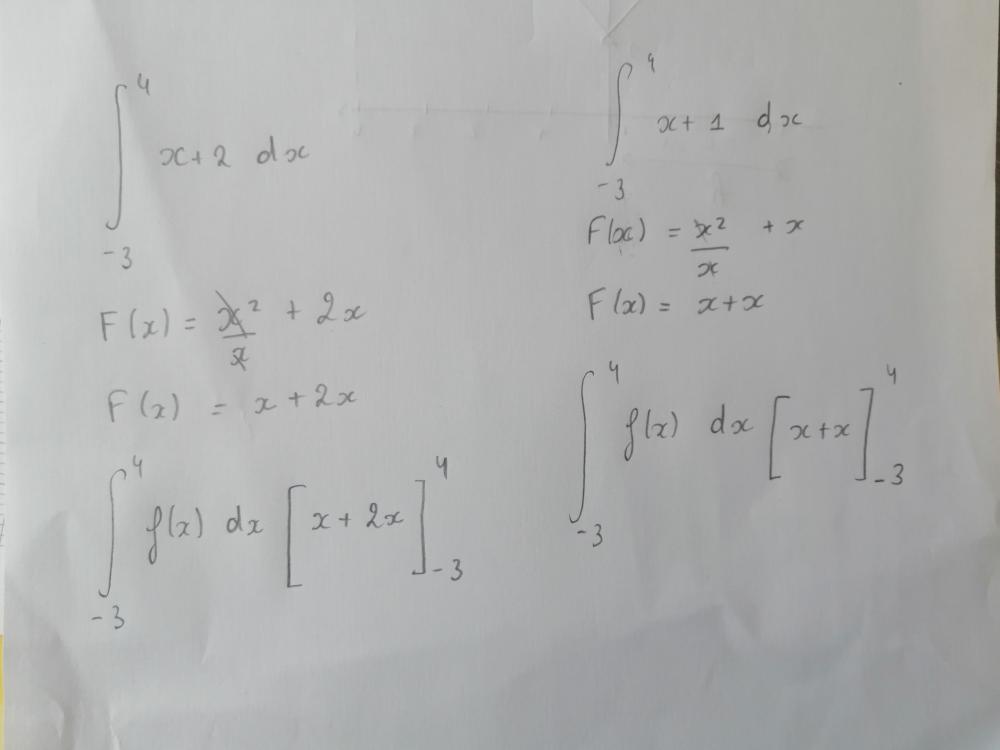 ∫_{-3}^{4} x+2 dx
F(x) = x²/x + 2x
F(x) = x + 2x
∫_{-3}^{4} f(x) dx [x + 2x]_{-3}^{4}
∫_{-3}^{4} x+1 dx
F(x) = x²/x + x
F(x) = x+x
∫_{-3}^{4} f(x) dx [x+x]_{-3}^{4}